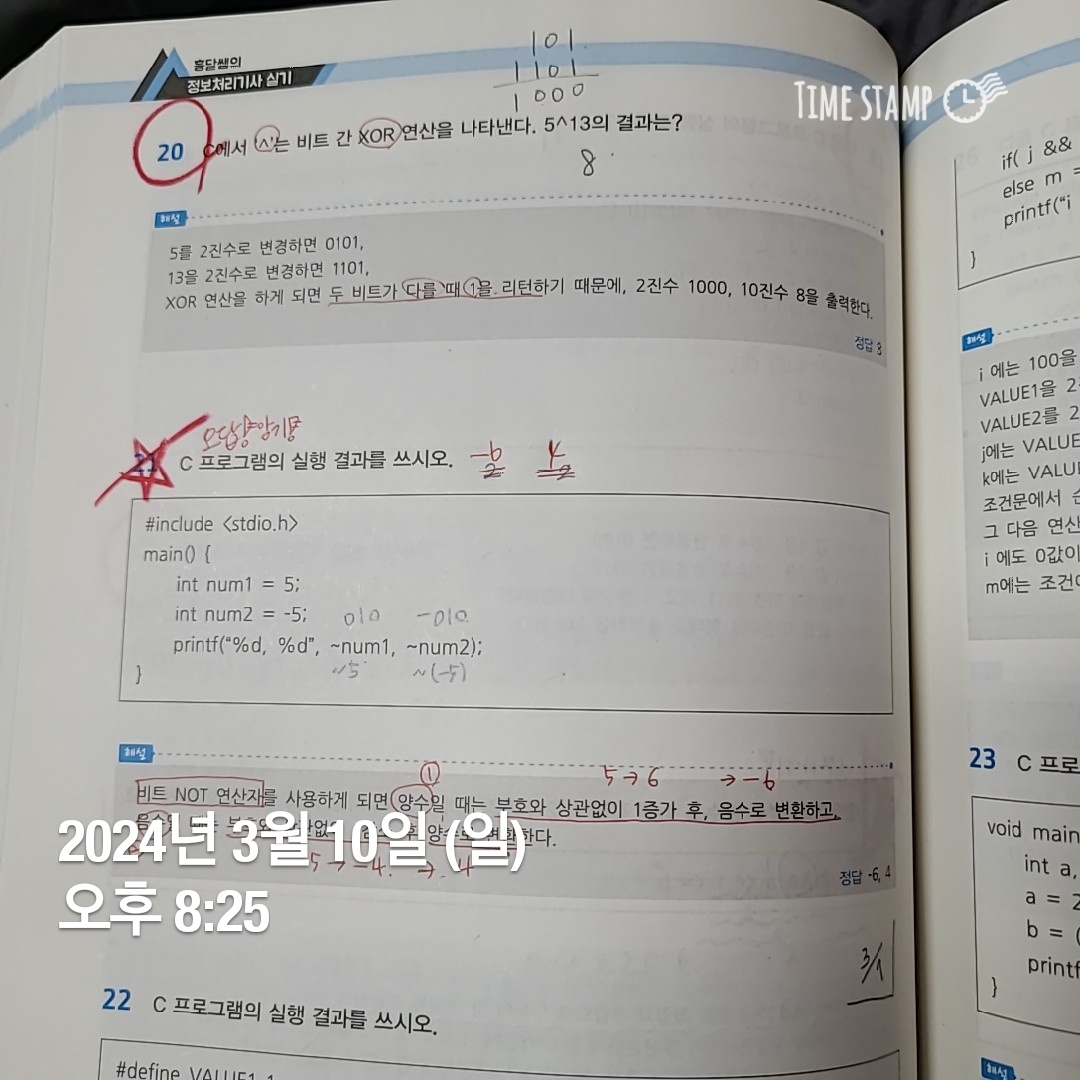 흥달쌤의
정보처리기사 실기
101
1101
1000
TIME STAMP
20 C에서 '^'는 비트 간 XOR 연산을 나타낸다. 5^13의 결과는?
8
해설
5를 2진수로 변경하면 0101,
13을 2진수로 변경하면 1101,
XOR 연산을 하게 되면 두 비트가 다를 때 1을 리턴하기 때문에, 2진수 1000, 10진수 8을 출력한다.
정답 8
21 C 프로그램의 실행 결과를 쓰시오. -6 4
#include <stdio.h>
main() {
int num1 = 5;
int num2 = -5; 010 -010
printf("%d, %d", ~num1, ~num2);
~5 ~(-5)
}
해설
① 5→6 →-6
비트 NOT 연산자를 사용하게 되면 양수일 때는 부호와 상관없이 1증가 후, 음수로 변환하고,
후 양수로 변환한다.
5→-4. → 4
정답 -6, 4
2024년 3월 10일 (일)
오후 8:25
3/1
22 C 프로그램의 실행 결과를 쓰시오.
#define VALUE1 1
if( j &&
else m =
printf("i
}
해설
i 에는 100을
VALUE1을 2
VALUE2를 2
j에는 VALUE
k에는 VALUE
조건문에서
그 다음 연산
i 에도 0값이
m에는
23 C 프로
void main
int a,
a = 2
b = (
printf
}
해설